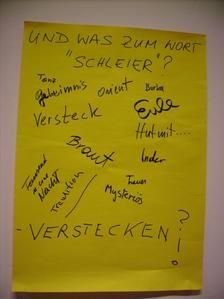 UND WAS ZUM WORT
"SCHLEIER"?
Tanz
Geheimnis
orient
Burka
Versteck
Eule
Hut mit.....
Braut
Inder
Tausend
u. eine
Nacht
Tradition
Trauer
Mysteriös
- VERSTECKEN?!